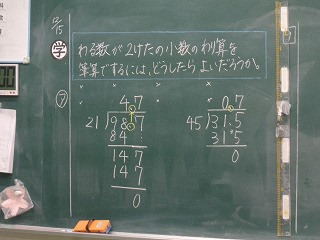 12/15
学
わる数が2けたの小数のわり算を
筆算でするには、どうしたらよいだろうか。
ア
4.7
21)98.7
84
147
147
0
0.7
45)31.5
31 5
0